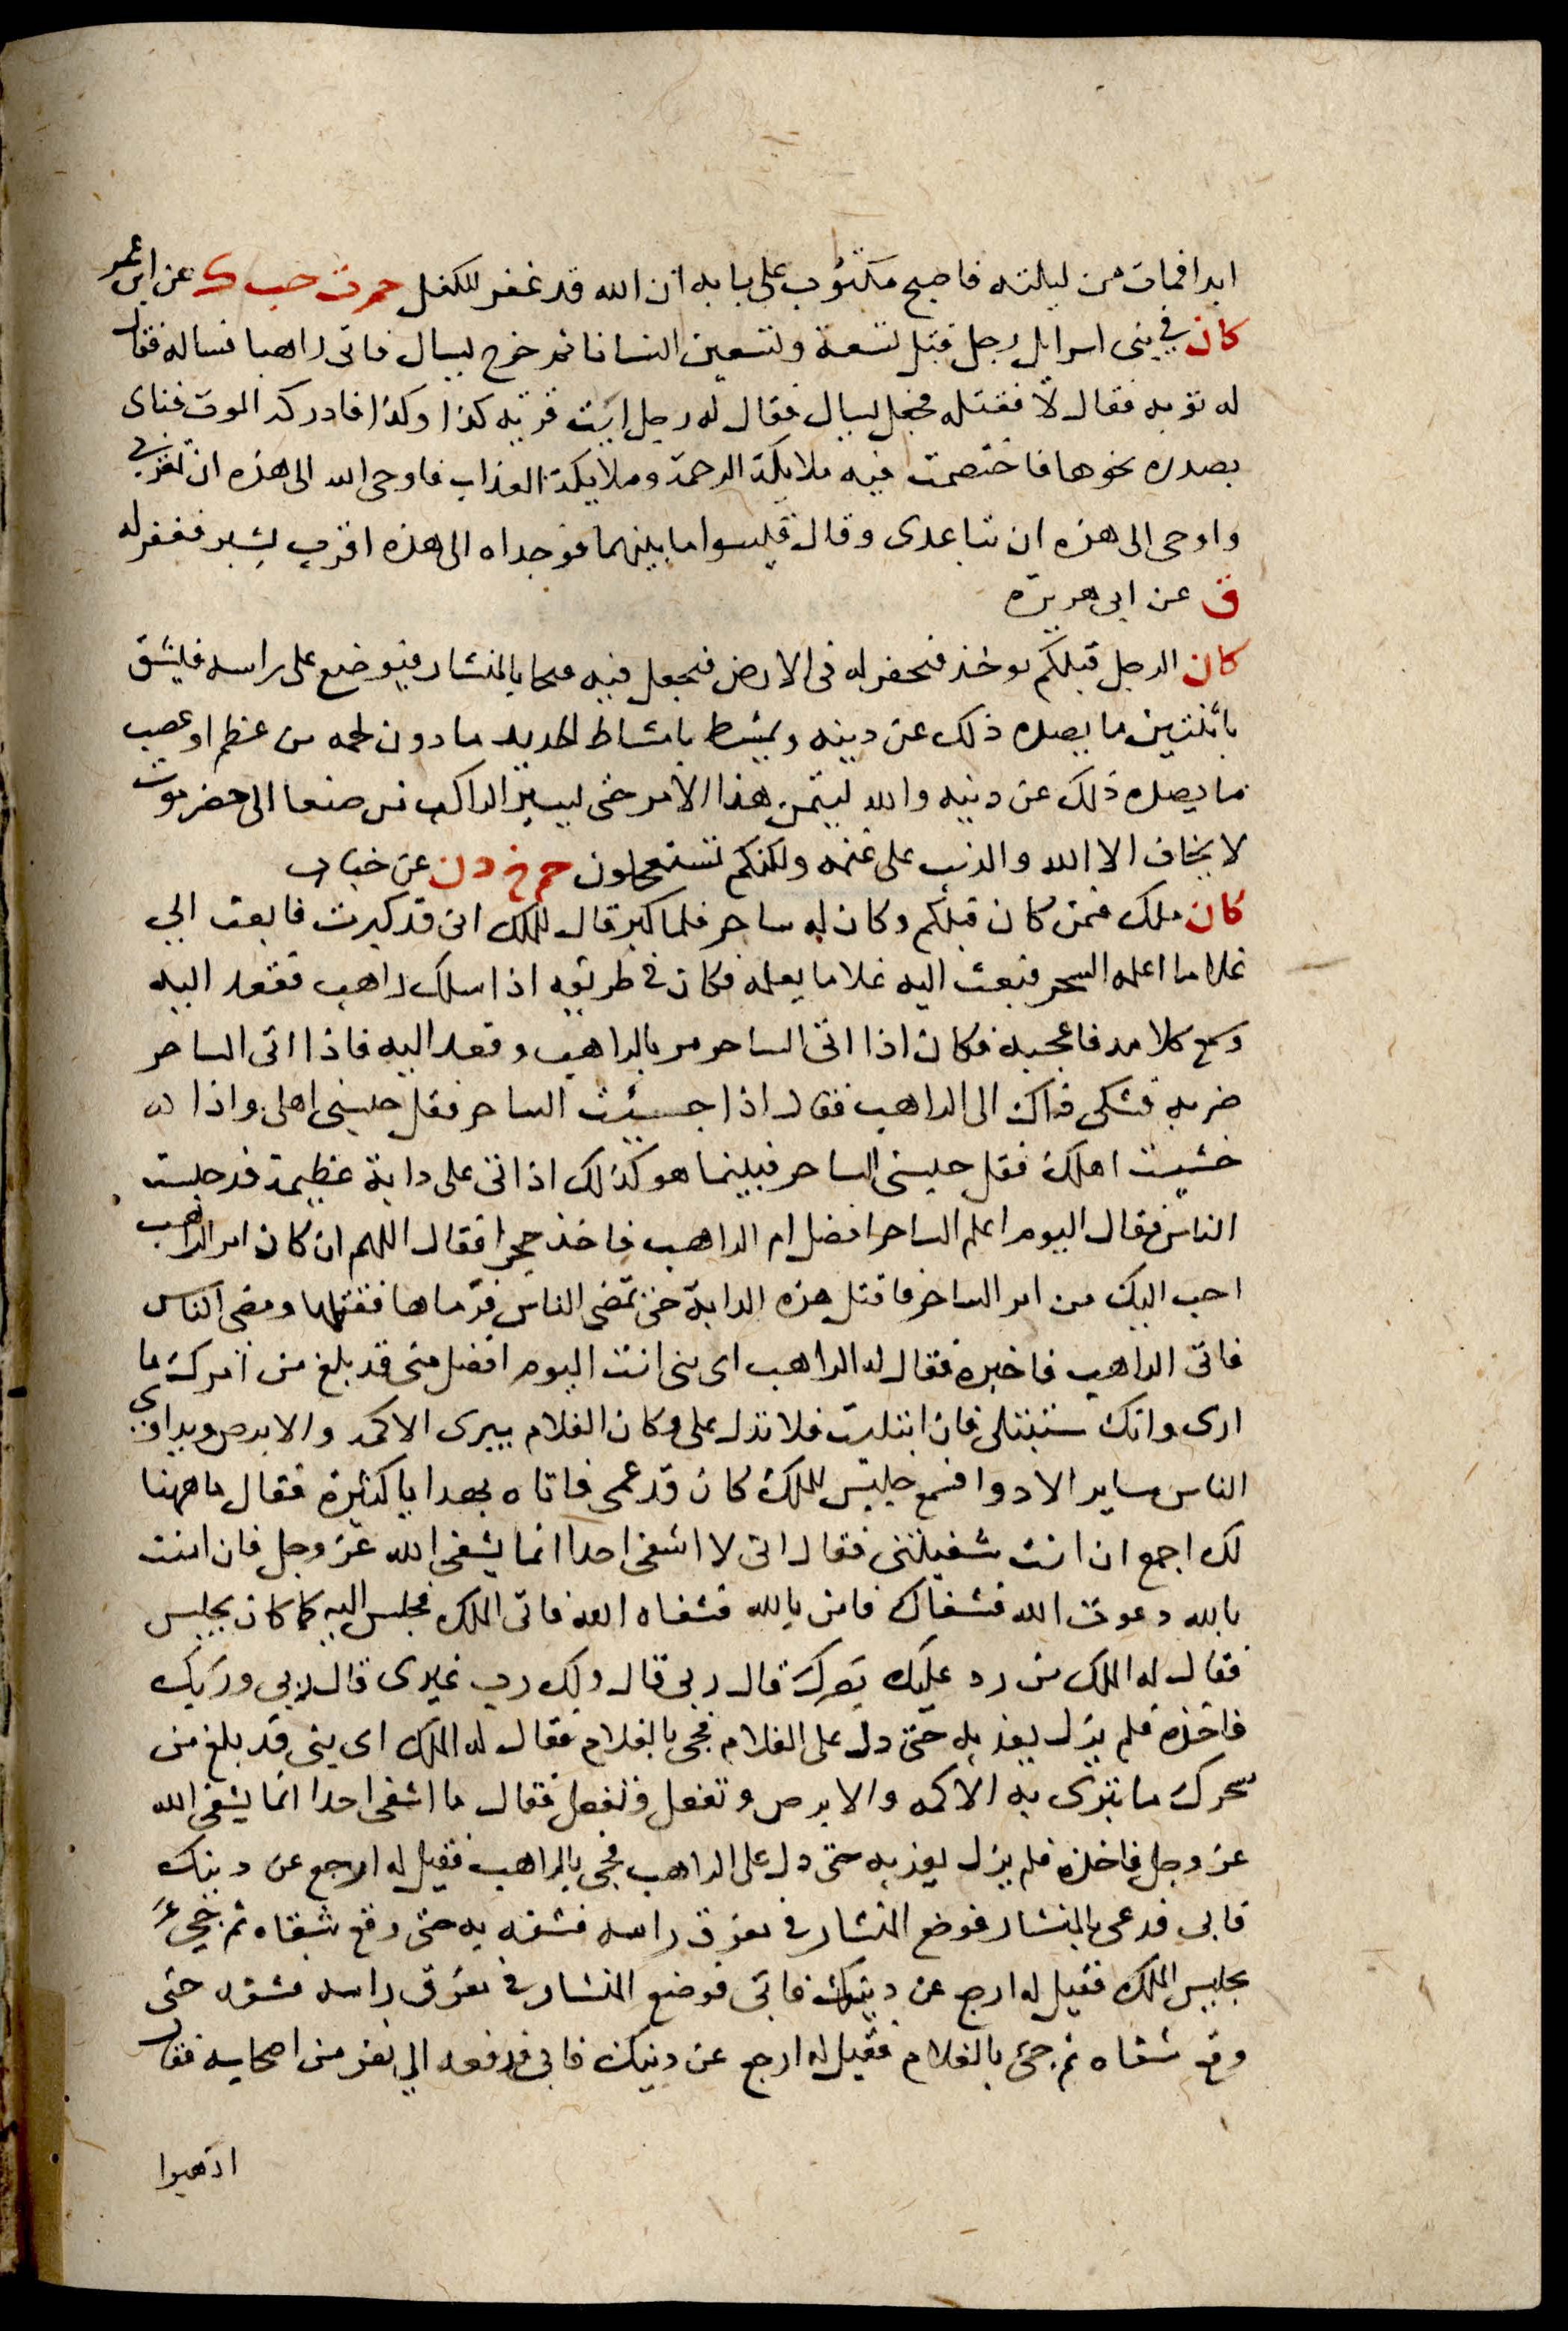 ابدا فمات من ليلته فاصبح مكتوب على بابه ان الله قد غفر للكفل حم ت حب ك عن ابن عمر
كان في بنى اسرايل رجل قتل تسعة وتسعين انسانا ثم خرج يسال فاتى راهبا فساله فقال
له توبه فقال لا فقتله فجعل يسال فقال له رجل ايت قريه كذا وكذا فادركه الموت فناى
بصدره نحوها فاختصمت فيه ملايكة الرحمة وملايكة العذاب فاوحى الله الى هذه ان تقربي
واوحى الى هذه ان تباعدى وقال قيسوا ما بينهما فوجداه الى هذه اقرب بشبر فغفر له
ق عن ابى هريره
كان الرجل قبلكم يوخذ فيحفر له فى الارض فيجعل فيه فيجا بالمنشار فيوضع على راسه فيشق
باثنتين ما يصده ذلك عن دينه ويمشط بامشاط الحديد ما دون لحمه من عظم او عصب
ما يصده ذلك عن دينه والله ليتمن هذا الامر حتى يسير الراكب من صنعا الى حضرموت
لا يخاف الا الله والذئب على غنمه ولكنكم تستعجلون حم خ د ن عن خباب
كان ملك فمن كان قبلكم وكان له ساحر فلما كبر قال للملك انى قد كبرت فابعث الي
غلاما اعلمه السحر فبعث اليه غلاما يعلمه فكان فى طريقه اذا سلك راهب فقعد اليه
وسمع كلامه فاعجبه فكان اذا اتى الساحر مر بالراهب وقعد اليه فاذا اتى الساحر
ضربه فشكى ذاك الى الراهب فقال اذا خشيت الساحر فقل حبسنى اهلى واذا
خشيت اهلك فقل حبسنى الساحر فبينما هو كذلك اذ اتى على دابة عظيمة قد حبست
الناس فقال اليوم اعلم الساحر افضل ام الراهب فاخذ حجرا فقال اللهم ان كان امر الراهب
احب اليك من امر الساحر فاقتل هذه الدابة حتى تمضى الناس فرماها فقتلها ومضى الناس
فاتى الراهب فاخبره فقال له الراهب اى بنى انت اليوم افضل منى قد بلغ من امرك ما
ارى وانك ستبتلى فان ابتليت فلا تدل على وكان الغلام يبرى الاكمه والابرص ويداوي
الناس ساير الادوا فسمع جليس للملك كان قد عمى فاتاه بهدايا كثيرة فقال ما ههنا
لك اجمع ان انت شفيتنى فقال انى لا اشفى احدا انما يشفى الله عز وجل فان امنت
بالله دعوت الله فشفاك فامن بالله فشفاه الله فاتى الملك فجلس اليه كما كان يجلس
فقال له الملك من رد عليك بصرك قال ربى قال ولك رب غيرى قال ربي وربك
فاخذه فلم يزل يعذبه حتى دل على الغلام فجى بالغلام فقال له الملك اى بنى قد بلغ من
سحرك ما تبرى به الاكمه والابرص وتفعل وتفعل فقال ما اشفى احدا انما يشفى الله
عز وجل فاخذه فلم يزل يعذبه حتى دل على الراهب فجى بالراهب فقيل له ارجع عن دينك
فابى فدعى بالمنشار فوضع المنشار فى مفرق راسه فشقه به حتى وقع شقاه ثم جيء
بجليس الملك فقيل له ارجع عن دينك فابى فوضع المنشار فى مفرق راسه فشقه حتى
وقع شقاه ثم جئ بالغلام فقيل له ارجع عن دينك فابى فدفعه الي نفر من اصحابه فقال
اذهبوا